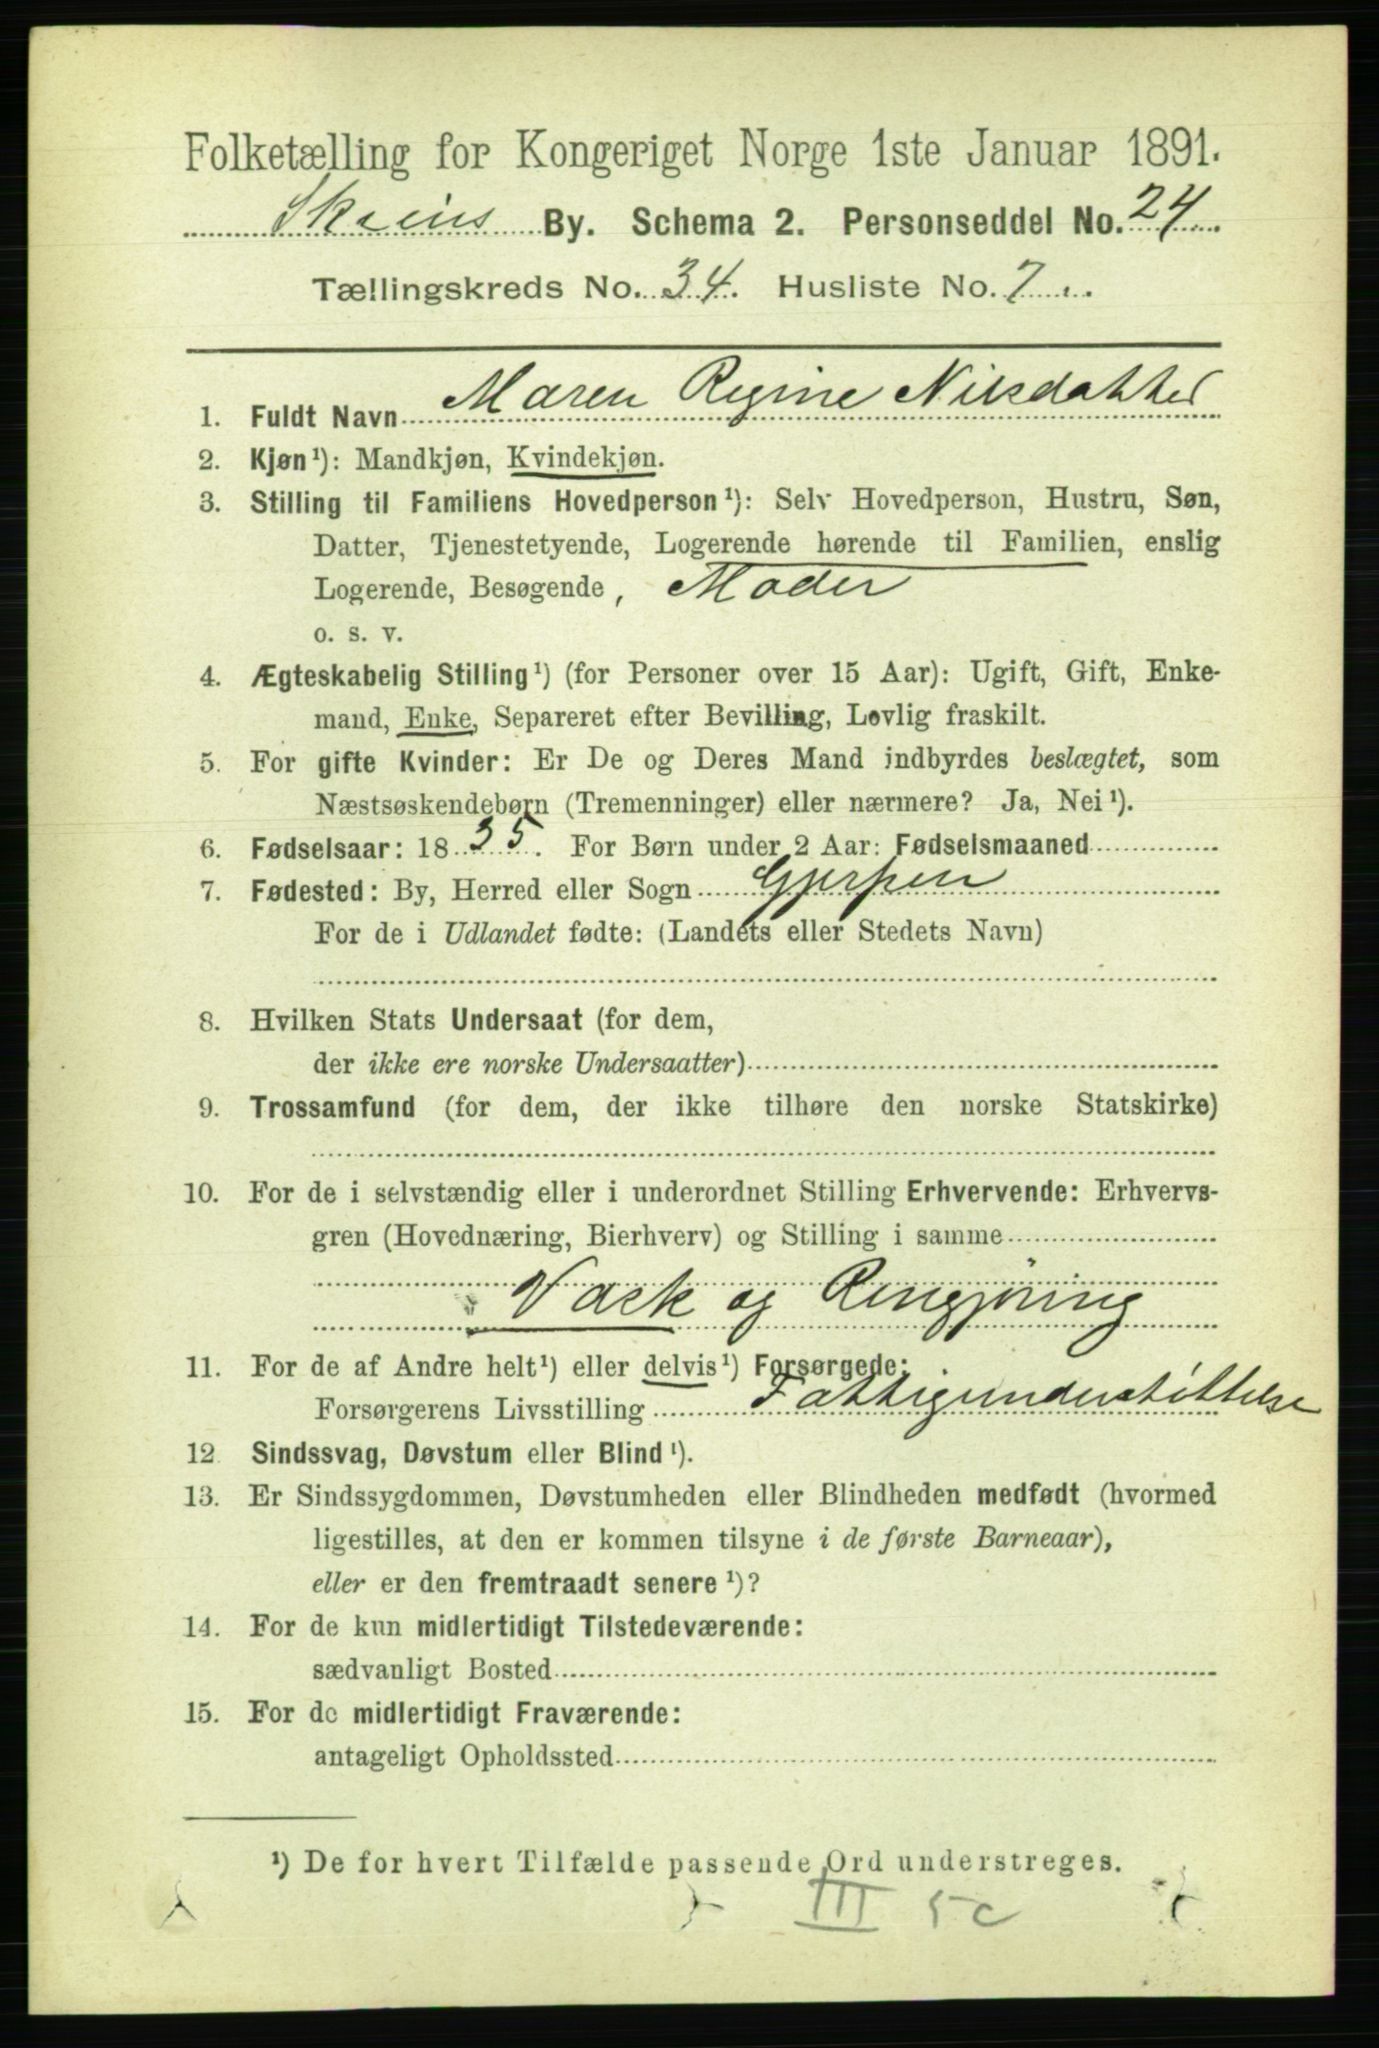 Folketælling for Kongeriget Norge 1ste Januar 1891.
Skiens By. Schema 2. Personseddel No. 24
Tællingskreds No. 34. Husliste No. 7
1. Fuldt Navn Maren Regine Nilsdatter
2. Kjøn¹): Mandkjøn, Kvindekjøn.
3. Stilling til Familiens Hovedperson¹): Selv Hovedperson, Hustru, Søn,
Datter, Tjenestetyende, Logerende hørende til Familien, enslig
Logerende, Besøgende, Moder
o. s. v.
4. Ægteskabelig Stilling¹) (for Personer over 15 Aar): Ugift, Gift, Enke-
mand, Enke, Separeret efter Bevilling, Lovlig fraskilt.
5. For gifte Kvinder: Er De og Deres Mand indbyrdes beslægtet, som
Næstsøskendebørn (Tremenninger) eller nærmere? Ja, Nei¹).
6. Fødselsaar: 1835. For Børn under 2 Aar: Fødselsmaaned
7. Fødested: By, Herred eller Sogn Gjerpen
For de i Udlandet fødte: (Landets eller Stedets Navn)
8. Hvilken Stats Undersaat (for dem,
der ikke ere norske Undersaatter)
9. Trossamfund (for dem, der ikke tilhøre den norske Statskirke)
10. For de i selvstændig eller i underordnet Stilling Erhvervende: Erhvervs-
gren (Hovednæring, Bierhverv) og Stilling i samme
Vask og Rengjøring
11. For de af Andre helt¹) eller delvis¹) Forsørgede:
Forsørgerens Livsstilling Fattigunderstøttelse
12. Sindssvag, Døvstum eller Blind¹).
13. Er Sindssygdommen, Døvstumheden eller Blindheden medfødt (hvormed
ligestilles, at den er kommen tilsyne i de første Barneaar),
eller er den fremtraadt senere¹)?
14. For de kun midlertidigt Tilstedeværende:
sædvanligt Bosted
15. For de midlertidigt Fraværende:
antageligt Opholdssted
¹) De for hvert Tilfælde passende Ord understreges.
III 5c